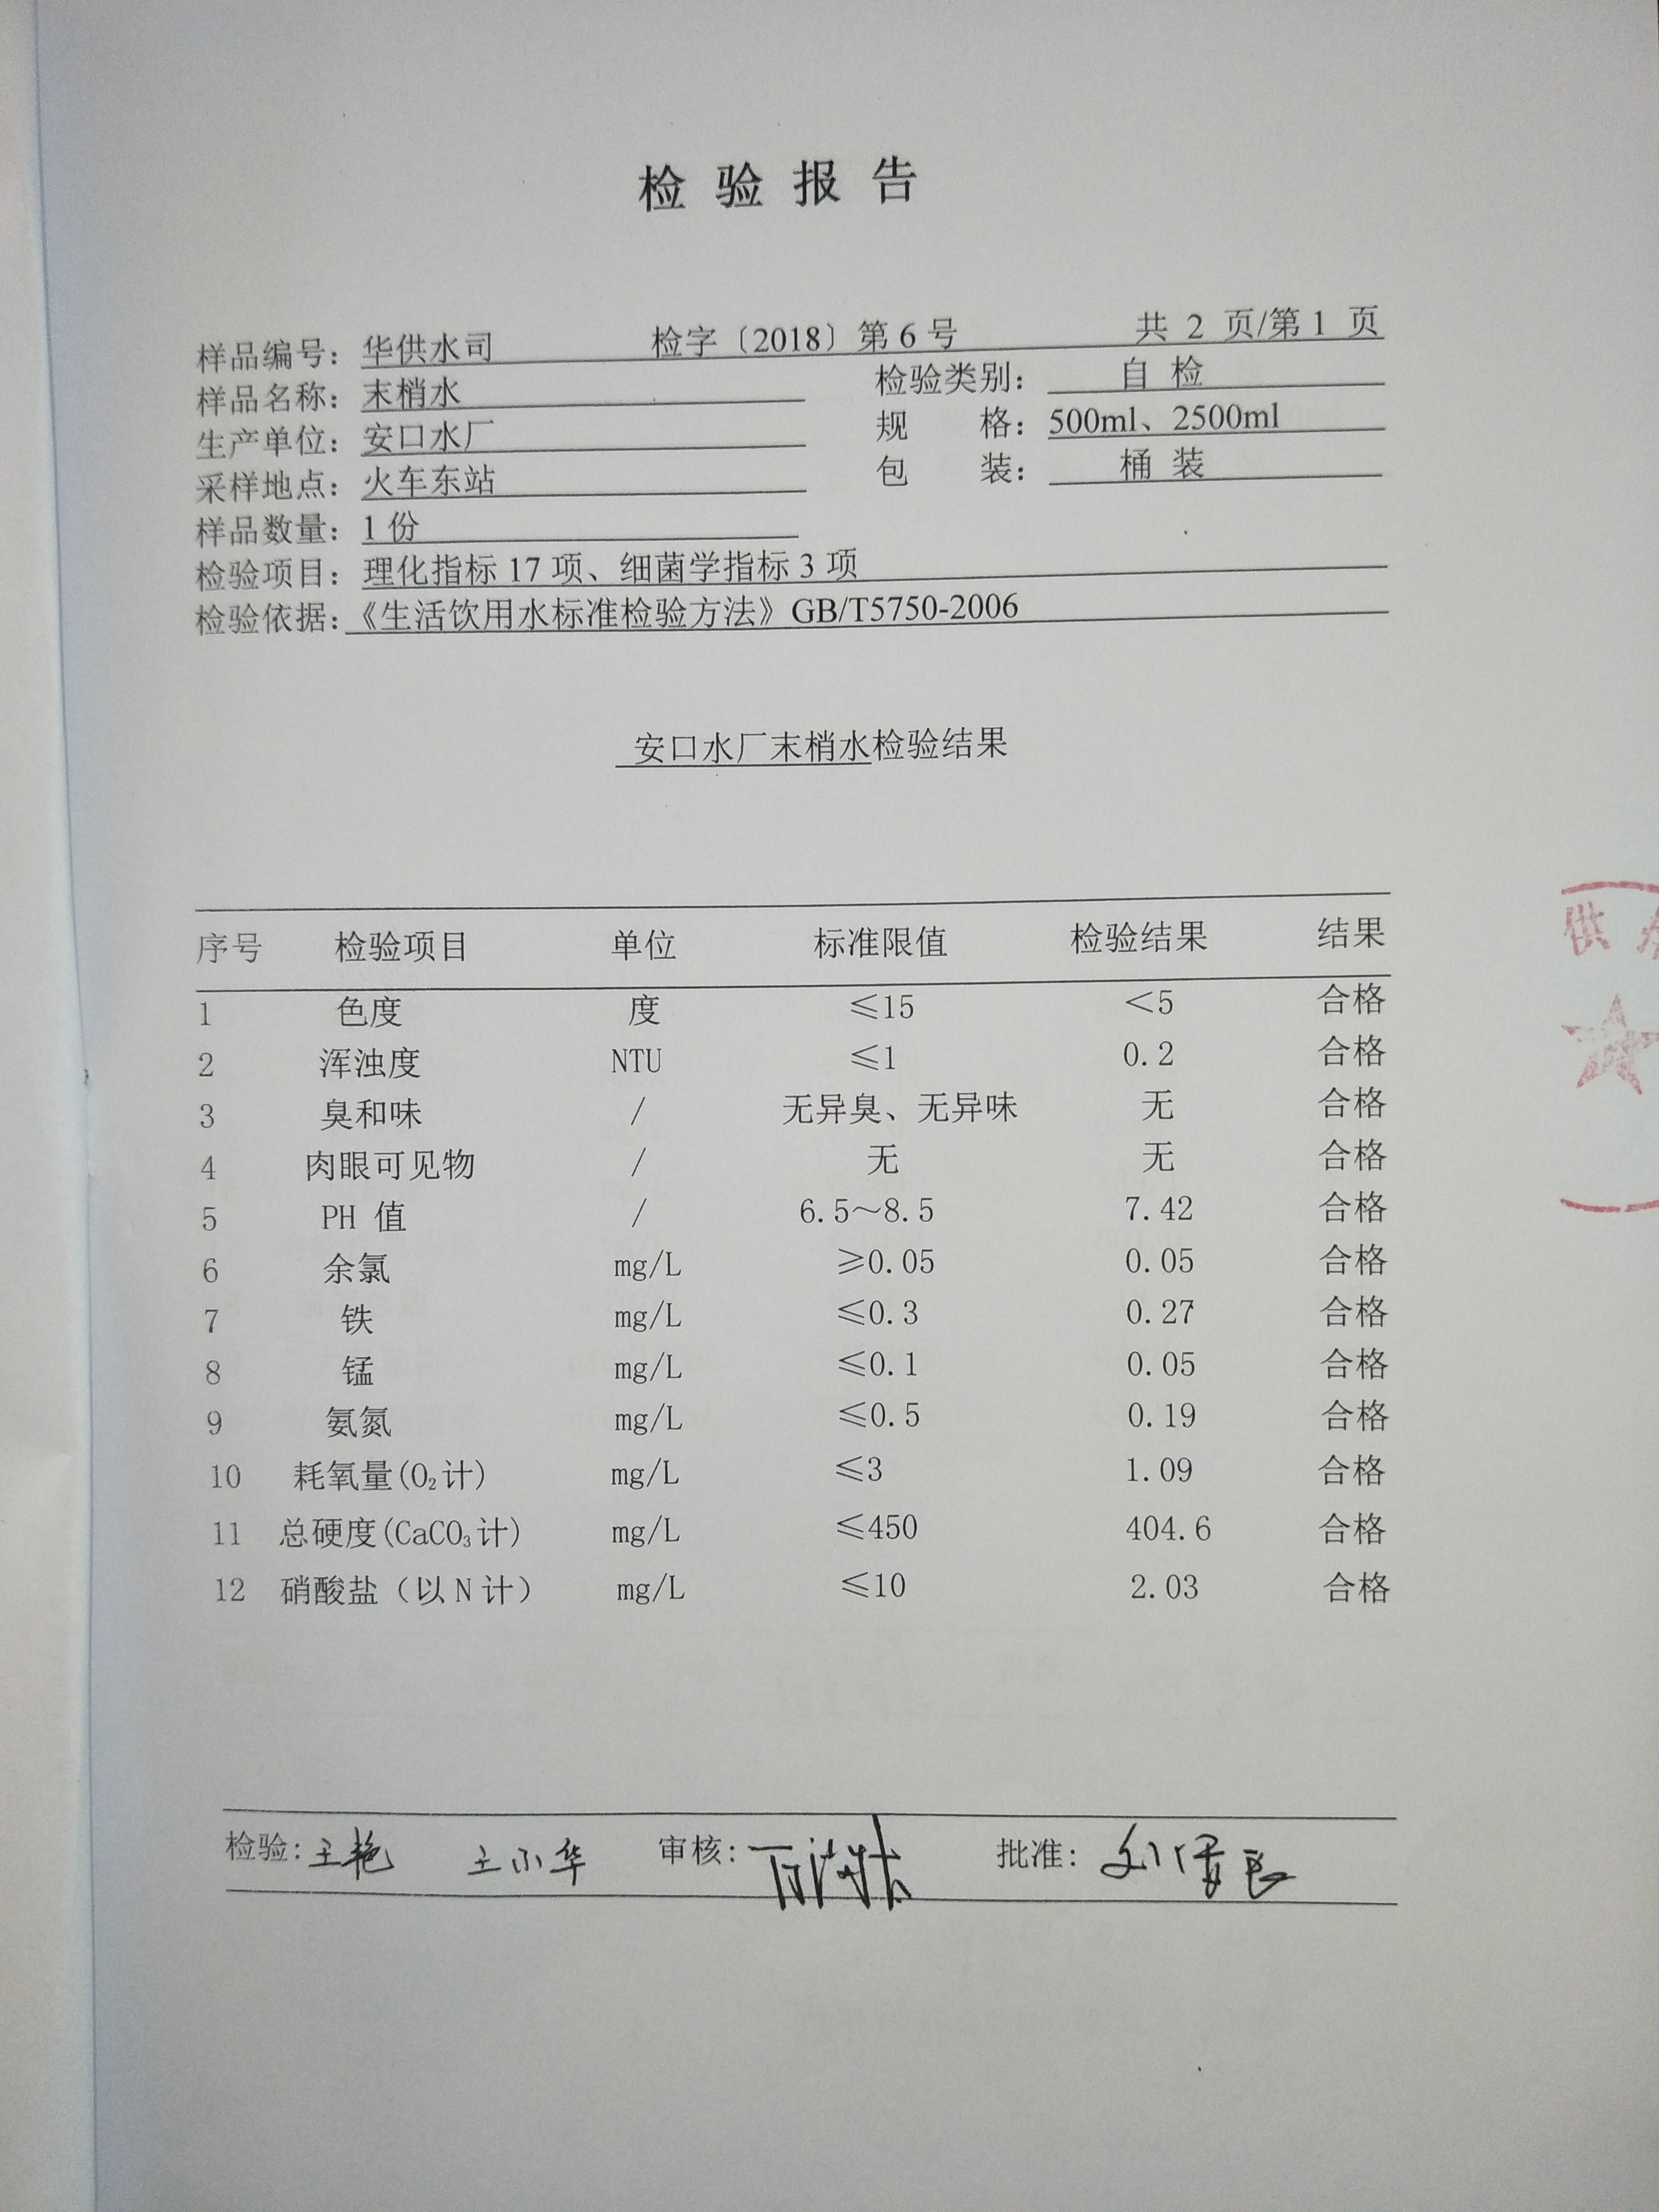 检验报告
样品编号：华供水司 检字〔2018〕第 6 号 共 2 页/第 1 页
样品名称：末梢水 检验类别：自 检
生产单位：安口水厂 规 格：500ml、2500ml
采样地点：火车东站 包 装：桶 装
样品数量：1 份
检验项目：理化指标 17 项、细菌学指标 3 项
检验依据：《生活饮用水标准检验方法》GB/T5750-2006
安口水厂末梢水检验结果
序号 检验项目 单位 标准限值 检验结果 结果
1 色度 度 ≤15 ＜5 合格
2 浑浊度 NTU ≤1 0.2 合格
3 臭和味 / 无异臭、无异味 无 合格
4 肉眼可见物 / 无 无 合格
5 PH 值 / 6.5～8.5 7.42 合格
6 余氯 mg/L ≥0.05 0.05 合格
7 铁 mg/L ≤0.3 0.27 合格
8 锰 mg/L ≤0.1 0.05 合格
9 氨氮 mg/L ≤0.5 0.19 合格
10 耗氧量(O₂计) mg/L ≤3 1.09 合格
11 总硬度(CaCO₃计) mg/L ≤450 404.6 合格
12 硝酸盐（以 N 计） mg/L ≤10 2.03 合格
检验：王艳 王小华 审核： 批准：
供